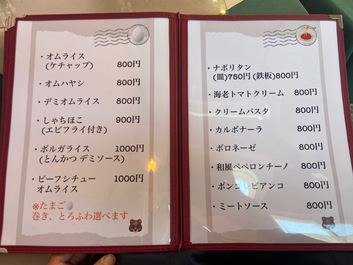 ・オムライス
(ケチャップ) 800円
・オムハヤシ 800円
・デミオムライス 800円
・しゃちほこ 900円
(エビフライ付き)
・ボルガライス 1000円
(とんかつ デミソース)
・ビーフシチュー 1000円
オムライス
※たまご
巻き、とろふわ選べます
・ナポリタン
(皿)750円 (鉄板)800円
・海老トマトクリーム 800円
・クリームパスタ 800円
・カルボナーラ 800円
・ボロネーゼ 800円
・和風ペペロンチーノ 800円
・ボンゴレビアンコ 800円
・ミートソース 800円